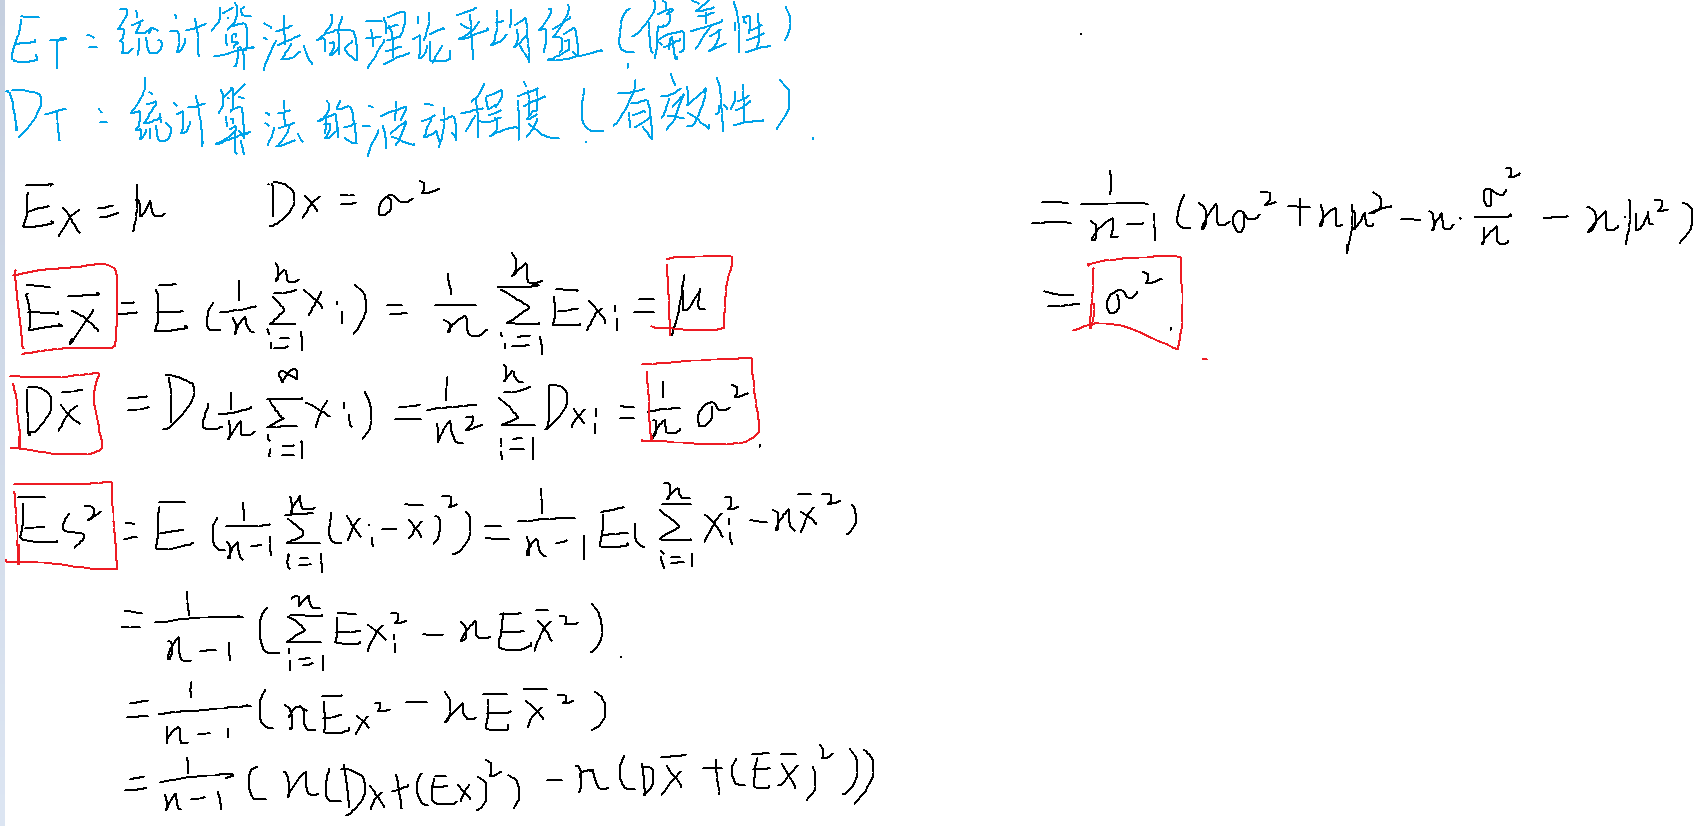 ET：统计算法的理论平均值（偏差性）
DT：统计算法的波动程度（有效性）.
EX = μ  DX = σ²
EX̄ = E(1/n ∑_{i=1}^{n} Xi) = 1/n ∑_{i=1}^{n} EXi = μ
DX̄ = D(1/n ∑_{i=1}^{∞} Xi) = 1/n² ∑_{i=1}^{n} DXi = 1/n σ².
ES² = E(1/(n-1) ∑_{i=1}^{n} (Xi - X̄)²) = 1/(n-1) E(∑_{i=1}^{n} Xi² - nX̄²)
= 1/(n-1) (∑_{i=1}^{n} EXi² - nEX̄²).
= 1/(n-1) (nEX² - nEX̄²)
= 1/(n-1) (n(DX+(EX)²) - n(DX̄ + (EX̄)²))
= 1/(n-1) (nσ² + nμ² - n·σ²/n - nμ²)
= σ².